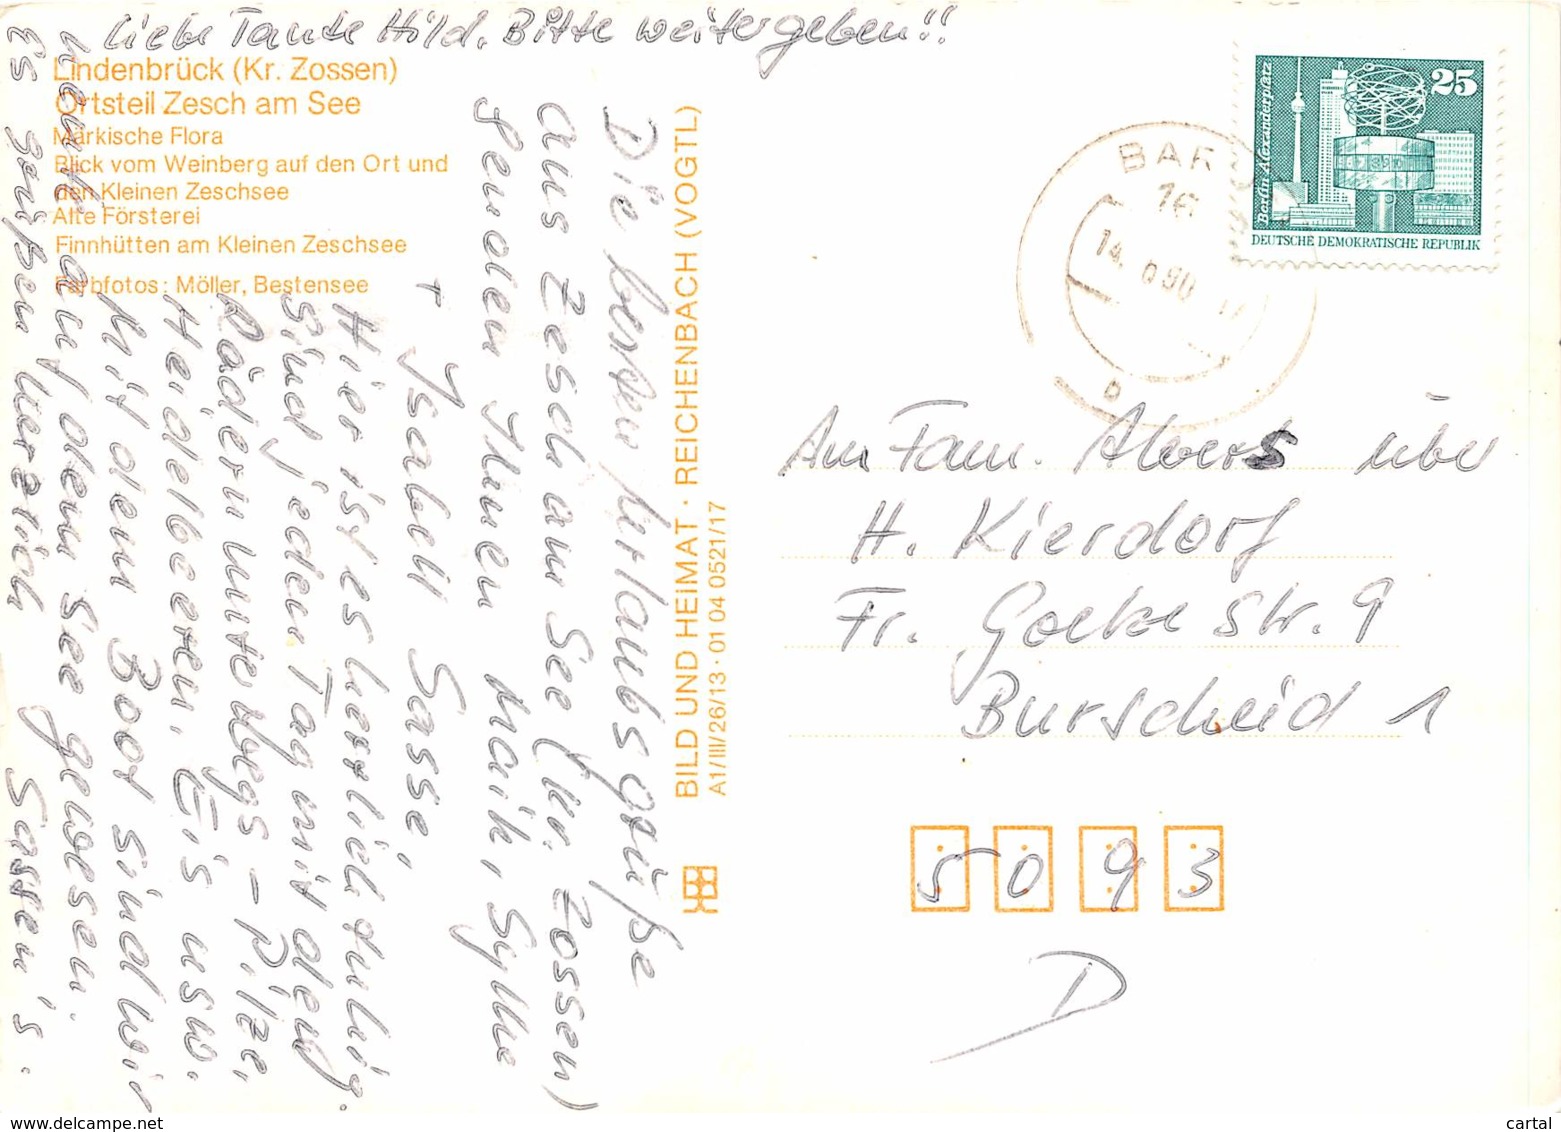 Liebe Tante Hild. Bitte weitergeben!!
Lindenbrück (Kr. Zossen)
Ortsteil Zesch am See
Märkische Flora
Blick vom Weinberg auf den Ort und
den Kleinen Zeschsee
Alte Försterei
Finnhütten am Kleinen Zeschsee
Farbfotos: Möller, Bestensee
Die besten Urlaubsgrüße
aus Zesch am See (Kr. Zossen)
senden Ihnen Maik, Sylke
+ Isabell Sasse,
Hier ist es herrlich ruhig.
Sind jeden Tag mit den
Rädern unterwegs – Pilze,
Heidelbeeren, Eis usw.
Mit dem Boot sind wir
heute auf dem See gewesen.
Es grüßen herzlich Sassen's.
BILD UND HEIMAT · REICHENBACH (VOGTL)
A1/III/26/13 · 01 04 0521/17
BAR
16
14. 0.90
b
Berlin, Alexanderplatz
25
DEUTSCHE DEMOKRATISCHE REPUBLIK
An Fam. Alvers über
H. Kierdorf
Fr. Goethe Str. 9
Burscheid 1
5093
D
www.delcampe.net
cartal